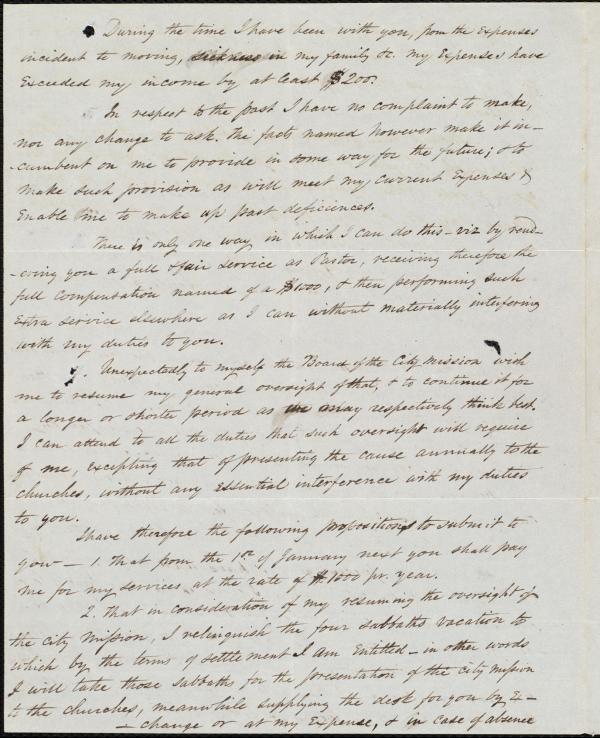 During the time I have been with you, from the Expenses
incident to moving, sickness in my family &c. my Expenses have
Exceeded my income by at least $200.
In respect to the past I have no complaint to make,
nor any change to ask. The facts named however make it in-
-cumbent on me to provide in some way for the future; & to
make such provision as will meet my current Expenses &
Enable me to make up past deficiences.
There is only one way in which I can do this - viz by rend-
-ering you a full & fair service as Pastor, receiving therefore the
full compensation named of a $1000, & then performing such
Extra service elsewhere as I can without materially interfering
with my duties to you.
Unexpectedly to myself the Board of the City Mission wish
me to resume my general oversight of that, & to continue it for
a longer or shorter period as we may respectively think best.
I can attend to all the duties that such oversight will require
of me, excepting that of presenting the cause annually to the
churches, without any Essential interference with my duties
to you.
I have therefore the following propositions to submit to
you - 1. That from the 1st of January next you shall pay
me for my services at the rate of $1000 pr. year.
2. That in consideration of my resuming the oversight of
the city mission, I relinquish the four sabbaths vacation to
which by the terms of settlement I am Entitled - in other words
I will take those sabbaths for the presentation of the city mission
to the churches, meanwhile supplying the desk for you by Ex-
- change or at my Expense, & in case of absence